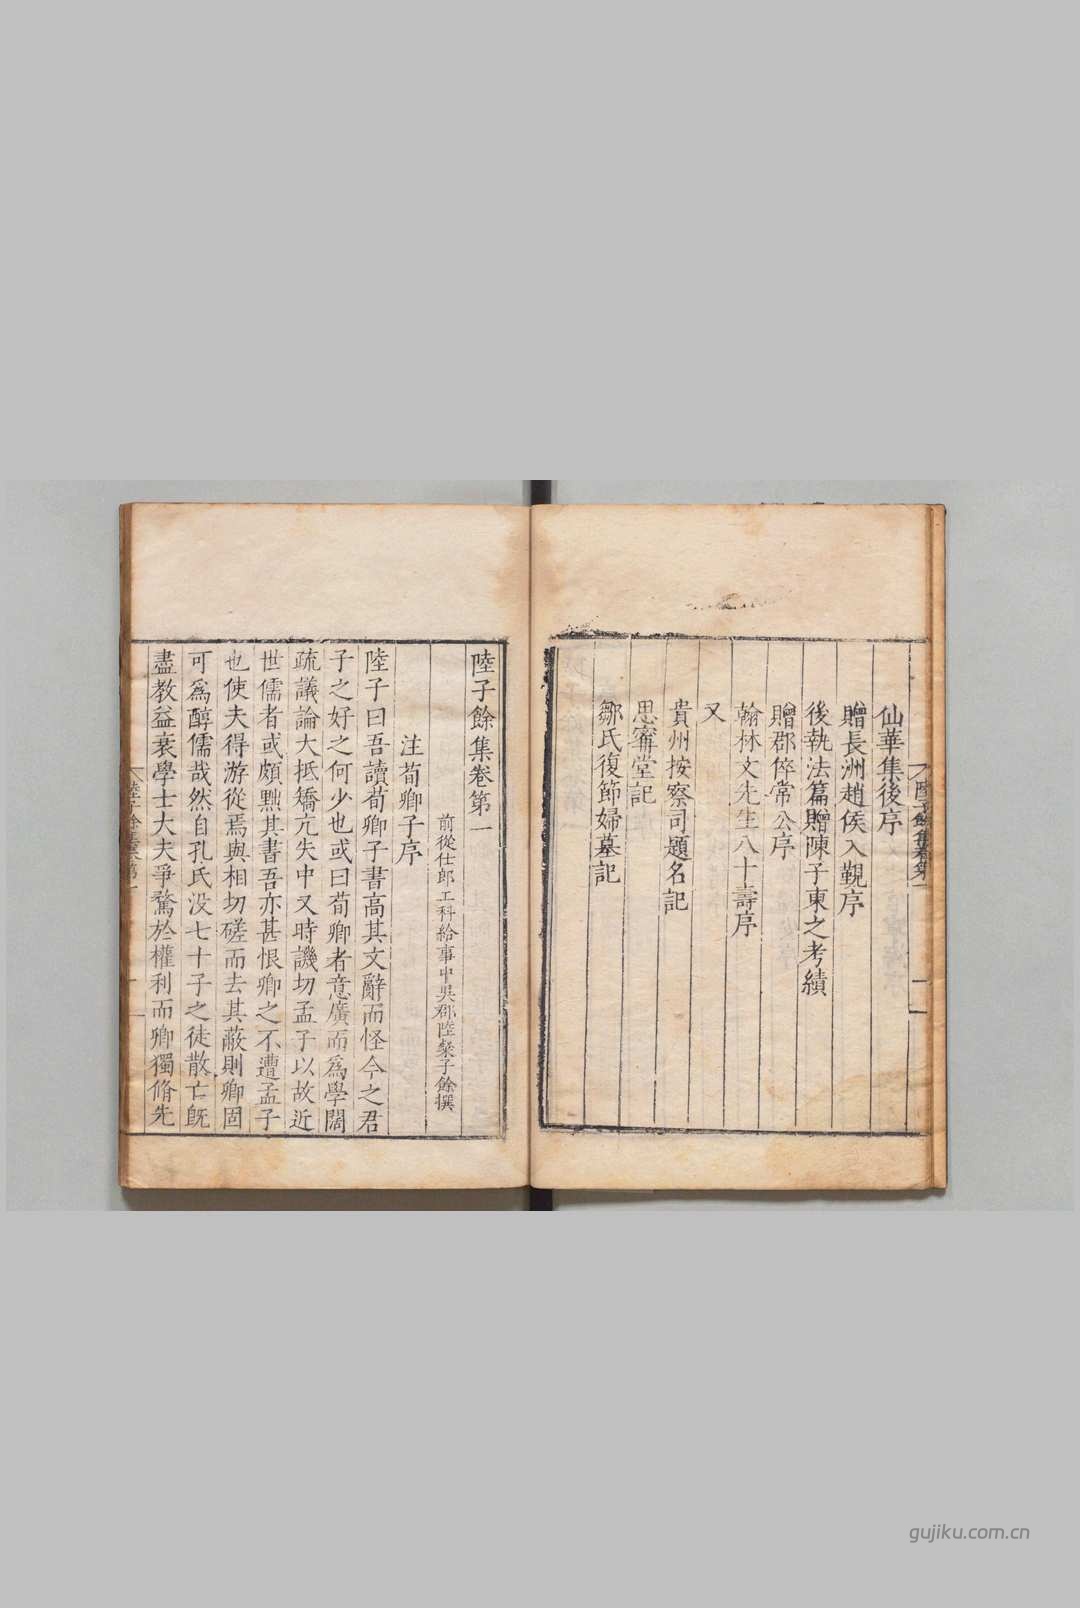 仙華集後序
贈長洲趙侯入覲序
後執法篇贈陳子東之考績
贈郡倅常公序
翰林文先生八十壽序
又
貴州按察司題名記
思審堂記
鄒氏復節婦墓記
陸子餘集卷第一
前從仕郎工科給事中吳郡陸粲子餘撰
注荀卿子序
陸子曰吾讀荀卿子書高其文辭而怪今之君
子之好之何少也或曰荀卿者意廣而爲學闊
疏議論大抵矯亢失中又時譏切孟子以故近
世儒者或頗黜其書吾亦甚恨卿之不遭孟子
也使夫得游從焉與相切磋而去其蔽則卿固
可爲醇儒哉然自孔氏没七十子之徒散亡旣
盡教益衰學士大夫爭騖於權利而卿獨脩先
gujiku.com.cn